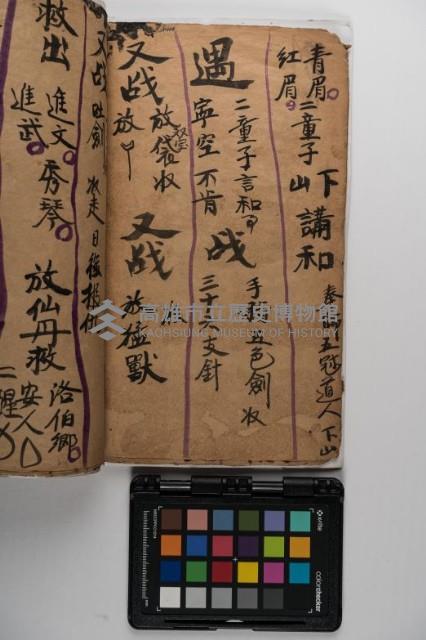 青眉
紅眉
二童子
下山
講和
五
道人下山
遇
二童子言和
寧空不肯
战
手
五色劍收
三十
支針
又战
放袋收
放
又战
放猛獸
又战
吐劍
收走日後报仇
救出
進文
進武
秀琴
放仙丹救
洛伯鄉
安人
二醒
高雄市立歷史博物館
KAOHSIUNG MUSEUM OF HISTORY
x-rite
colorchecker